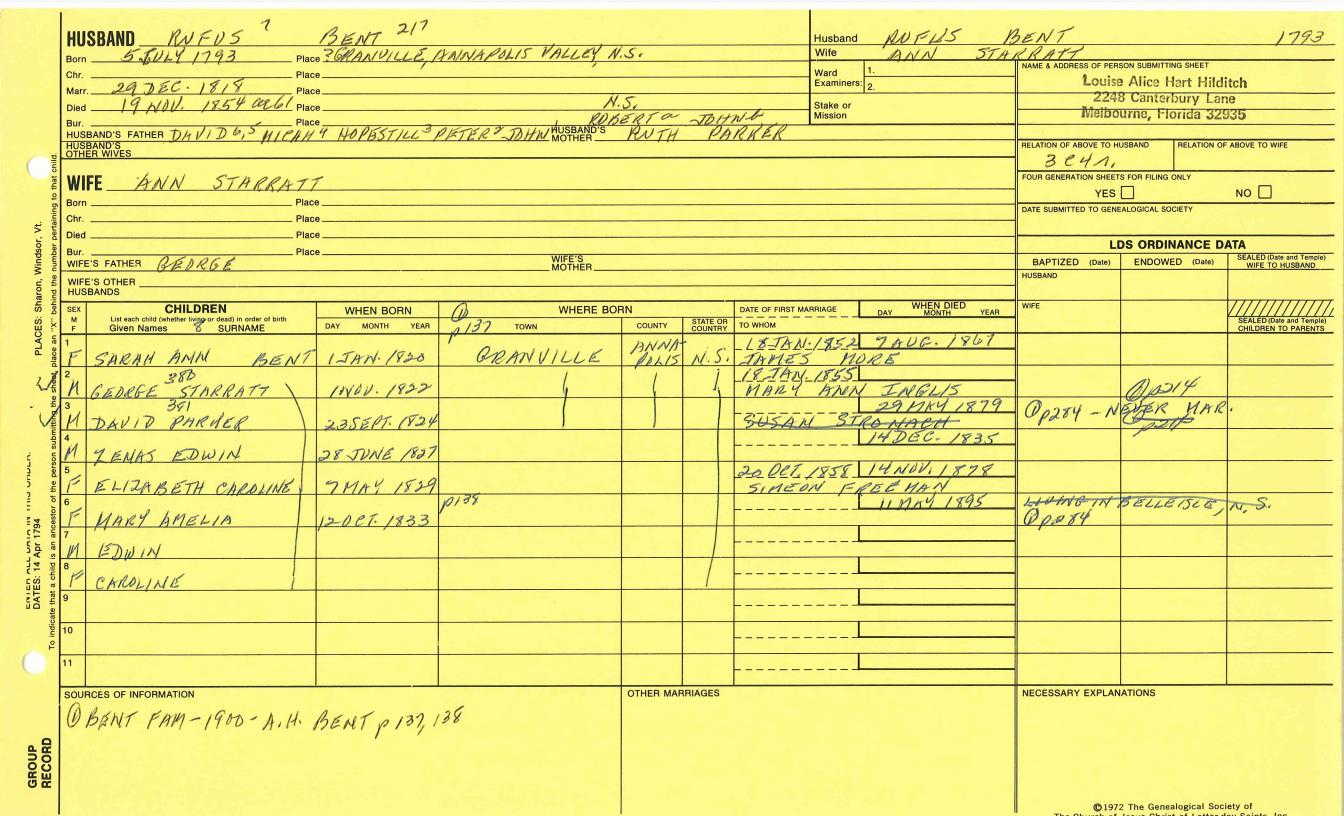 HUSBAND RUFUS 7 BENT 217
Born 5 JULY 1793 Place ? GRANVILLE, ANNAPOLIS VALLEY, N.S.
Chr. Place
Marr. 29 DEC. 1818 Place
Died 19 NOV. 1854 or 61 Place N.S.
Bur. Place ROBERT a JOHN b
HUSBAND'S FATHER DAVID 6,5 MICAH 4 HOPESTILL 3 PETER 2 JOHN HUSBAND'S MOTHER RUTH PARKER
HUSBAND'S OTHER WIVES
Husband RUFUS BENT 1793
Wife ANN STARRATT
Ward Examiners: 1.
2.
Stake or Mission
NAME & ADDRESS OF PERSON SUBMITTING SHEET
Louise Alice Hart Hilditch
2248 Canterbury Lane
Melbourne, Florida 32935
RELATION OF ABOVE TO HUSBAND RELATION OF ABOVE TO WIFE
3C4R.
FOUR GENERATION SHEETS FOR FILING ONLY
YES NO
DATE SUBMITTED TO GENEALOGICAL SOCIETY
WIFE ANN STARRATT
Born Place
Chr. Place
Died Place
Bur. Place
WIFE'S FATHER GEORGE WIFE'S MOTHER
WIFE'S OTHER HUSBANDS
LDS ORDINANCE DATA
BAPTIZED (Date) ENDOWED (Date) SEALED (Date and Temple) WIFE TO HUSBAND
HUSBAND
WIFE
SEALED (Date and Temple) CHILDREN TO PARENTS
SEX M F CHILDREN WHEN BORN ① p137 WHERE BORN DATE OF FIRST MARRIAGE WHEN DIED
List each child (whether living or dead) in order of birth
Given Names 8 SURNAME DAY MONTH YEAR TOWN COUNTY STATE OR COUNTRY TO WHOM DAY MONTH YEAR
1 18 JAN. 1852 7 AUG. 1867
F SARAH ANN BENT 1 JAN. 1820 GRANVILLE ANNAPOLIS N.S. JAMES MORE
2 380 18 JAN. 1855
M GEORGE STARRATT 1 NOV. 1822 MARY ANN INGLIS ① p214
3 381 29 MAY 1879
M DAVID PARKER 23 SEPT. 1824 SUSAN STRONACH ① p284 - NEVER MAR.
4 14 DEC. 1835
M ZENAS EDWIN 28 JUNE 1827
5 20 OCT. 1858 14 NOV. 1878
F ELIZABETH CAROLINE 7 MAY 1829 SIMEON FREEMAN
6 p138 11 MAY 1895 LIVING IN BELLEISLE, N.S.
F MARY AMELIA 12 OCT. 1833 ① p284
7
M EDWIN
8
F CAROLINE
9
10
11
SOURCES OF INFORMATION OTHER MARRIAGES NECESSARY EXPLANATIONS
① BENT FAM - 1900 - A.H. BENT p 137, 138
©1972 The Genealogical Society of
PLACES: Sharon, Windsor, Vt.
DATES: 14 Apr 1794
GROUP RECORD